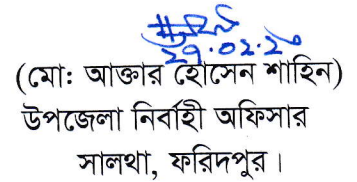 ২৭.০২.২০
(মো: আক্তার হোসেন শাহিন)
উপজেলা নির্বাহী অফিসার
সালথা, ফরিদপুর।